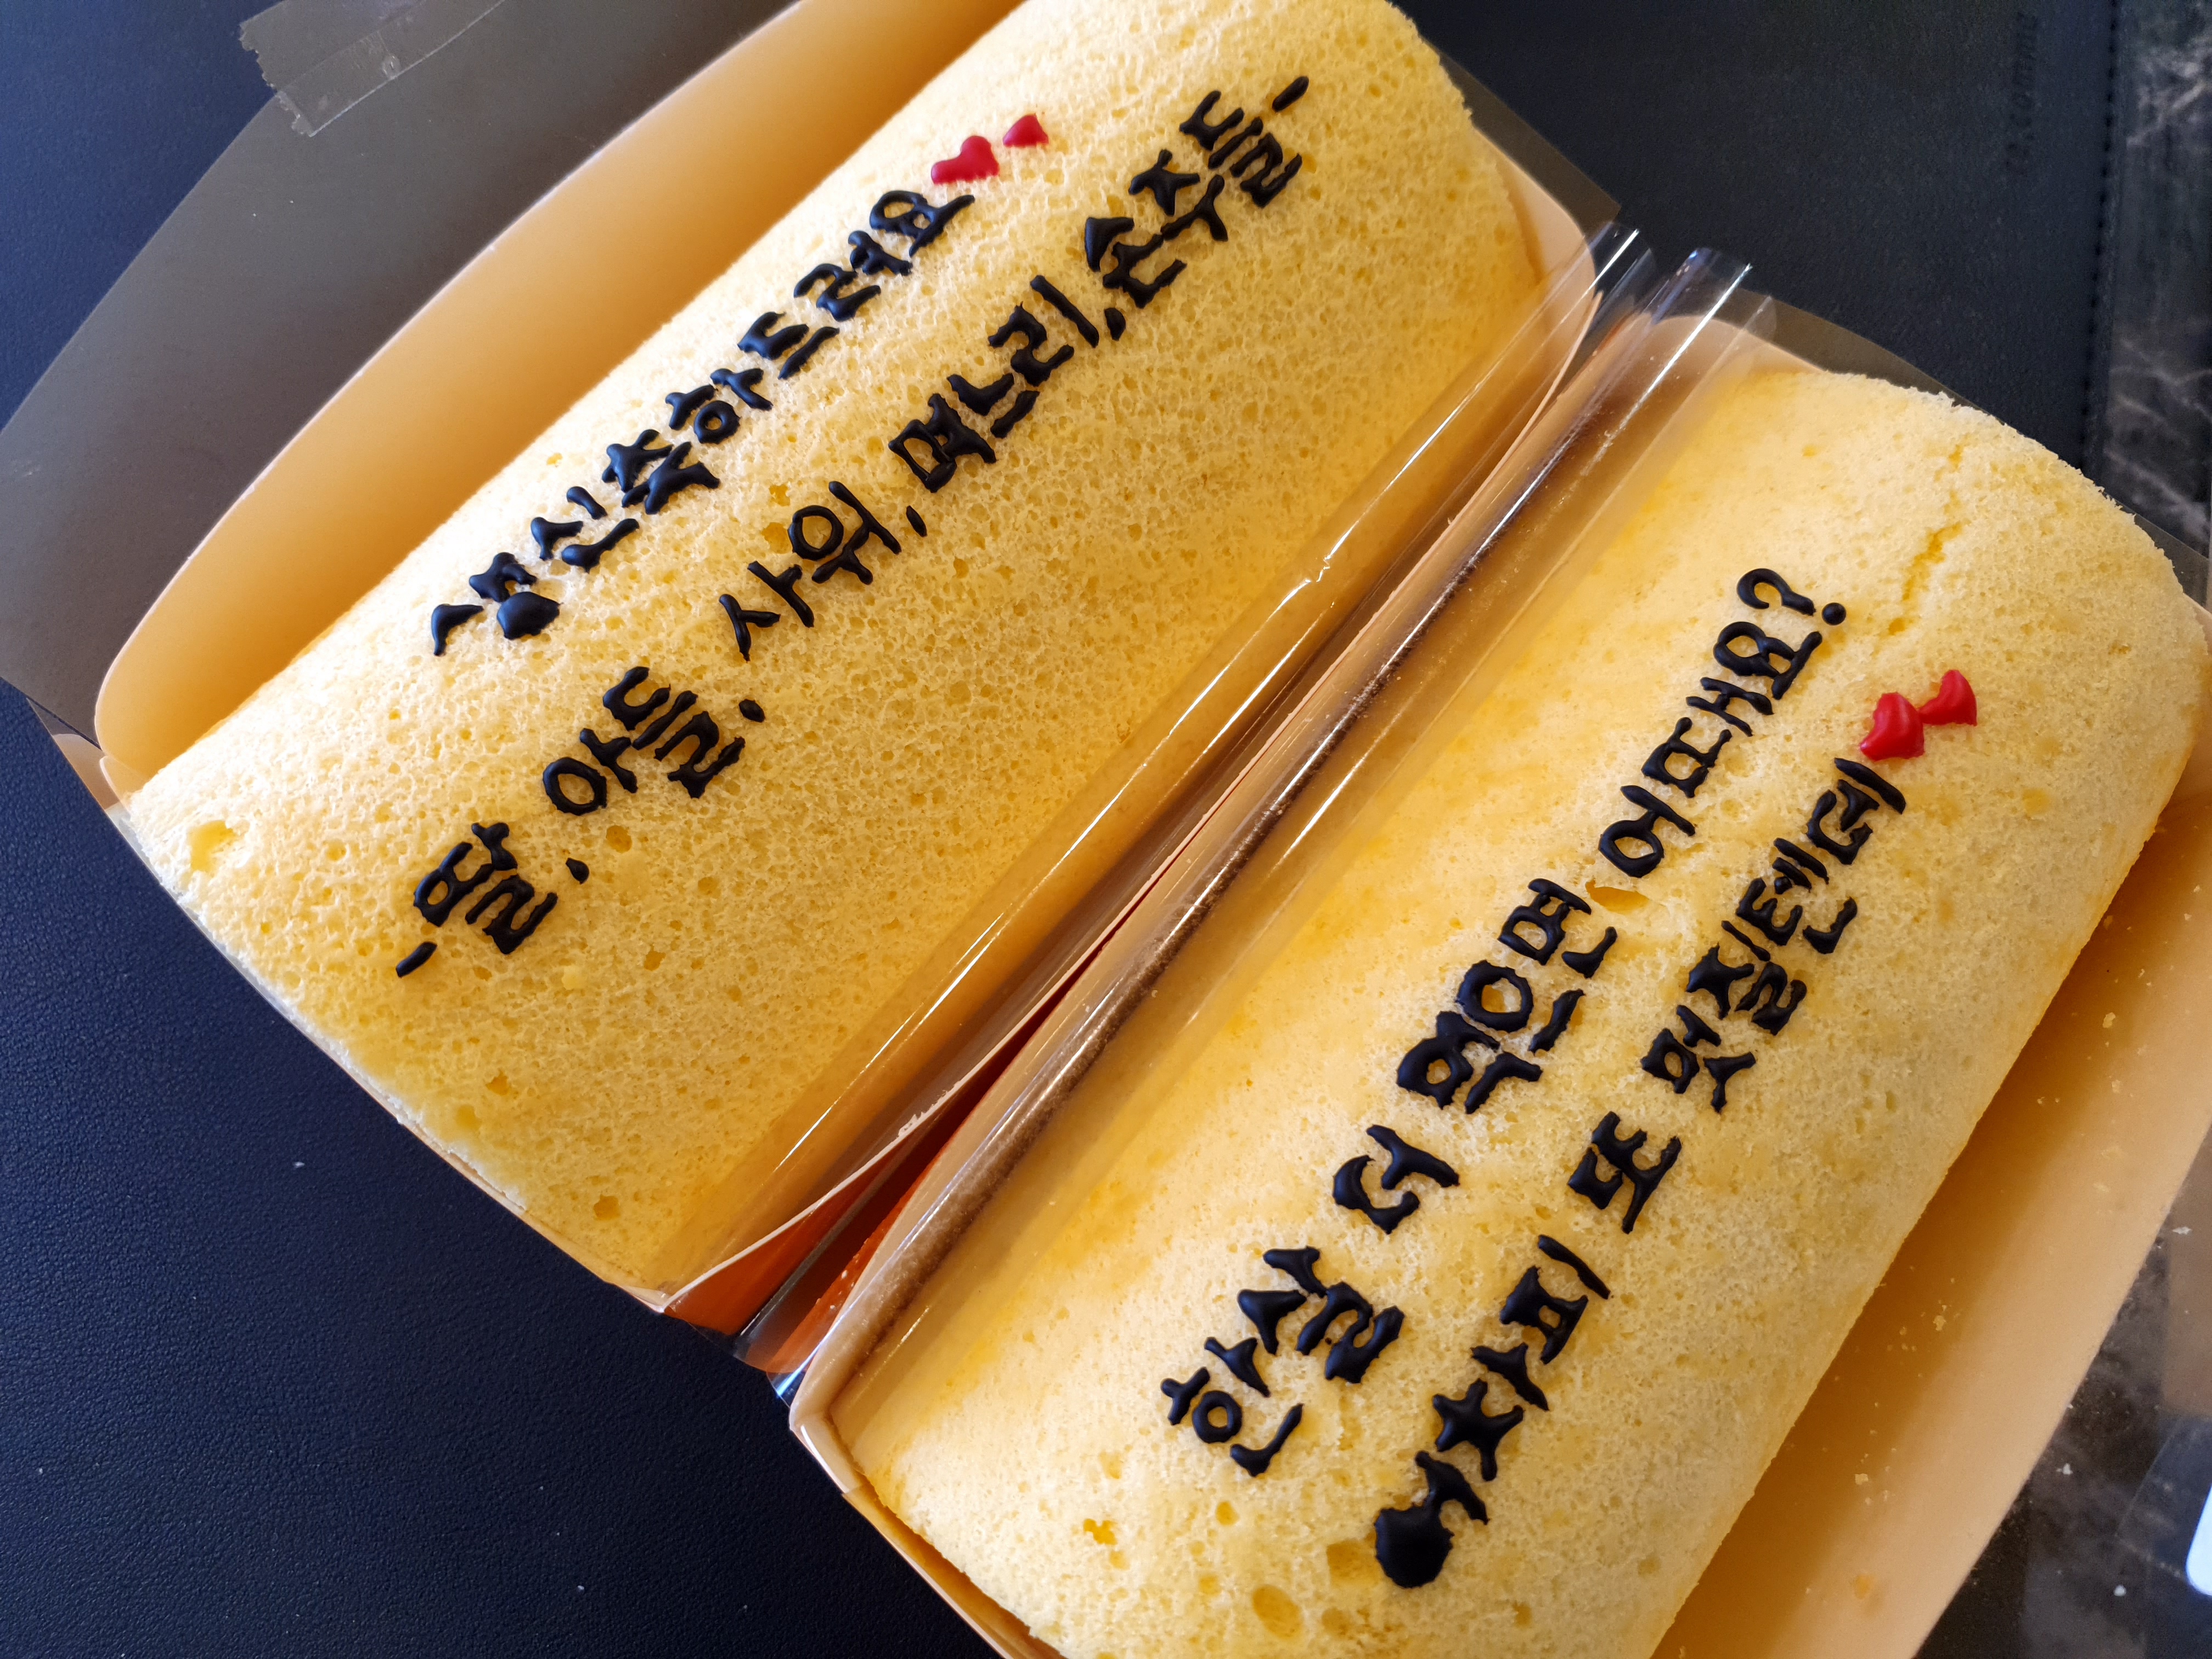 생신축하드려요
-딸, 아들, 사위, 며느리, 손주들-
한살 더 먹으면 어때요?
어차피 또 멋질텐데